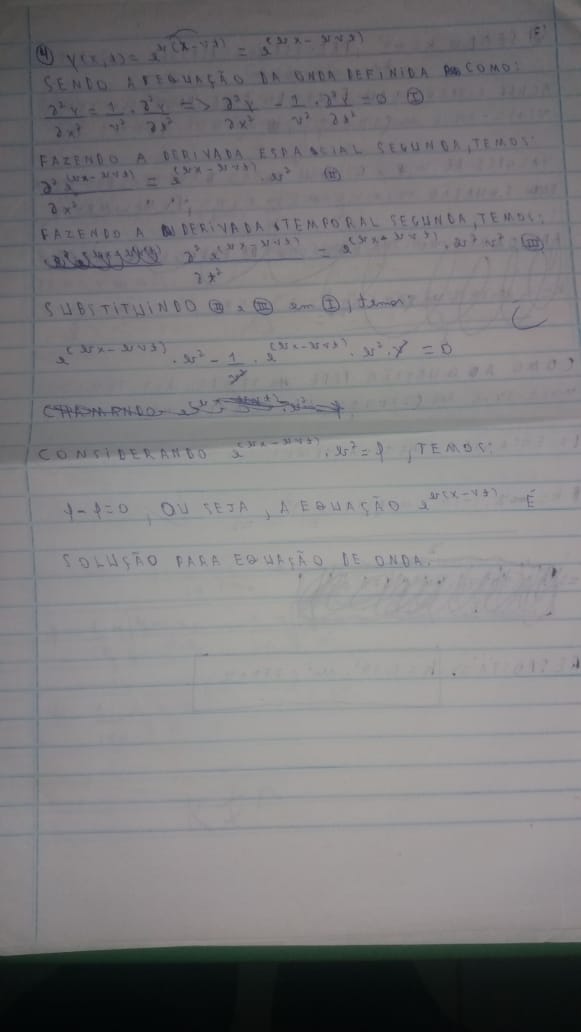 ④ Y(x,t) = e^{w(x-vt)} = e^{(wx - wvt)}
SENDO A EQUAÇÃO DA ONDA DEFINIDA COMO:
∂²Y/∂x² = 1/v² · ∂²Y/∂t² => ∂²Y/∂x² - 1/v² · ∂²Y/∂t² = 0 Ⓘ
FAZENDO A DERIVADA ESPACIAL SEGUNDA, TEMOS:
∂² e^{(wx - wvt)}/∂x² = e^{(wx - wvt)} · w² Ⓘⓘ
FAZENDO A DERIVADA TEMPORAL SEGUNDA, TEMOS:
∂² e^{(wx - wvt)}/∂t² = e^{(wx - wvt)} · w² · v² (III)
SUBSTITUINDO (II) e (III) em (I), temos:
e^{(wx - wvt)} · w² - 1/v² · e^{(wx - wvt)} · w² · v² = 0
CHAMANDO
CONSIDERANDO e^{(wx - wvt)} · w² = f, TEMOS:
f - f = 0, OU SEJA, A EQUAÇÃO e^{w(x-vt)} É
SOLUÇÃO PARA EQUAÇÃO DE ONDA.